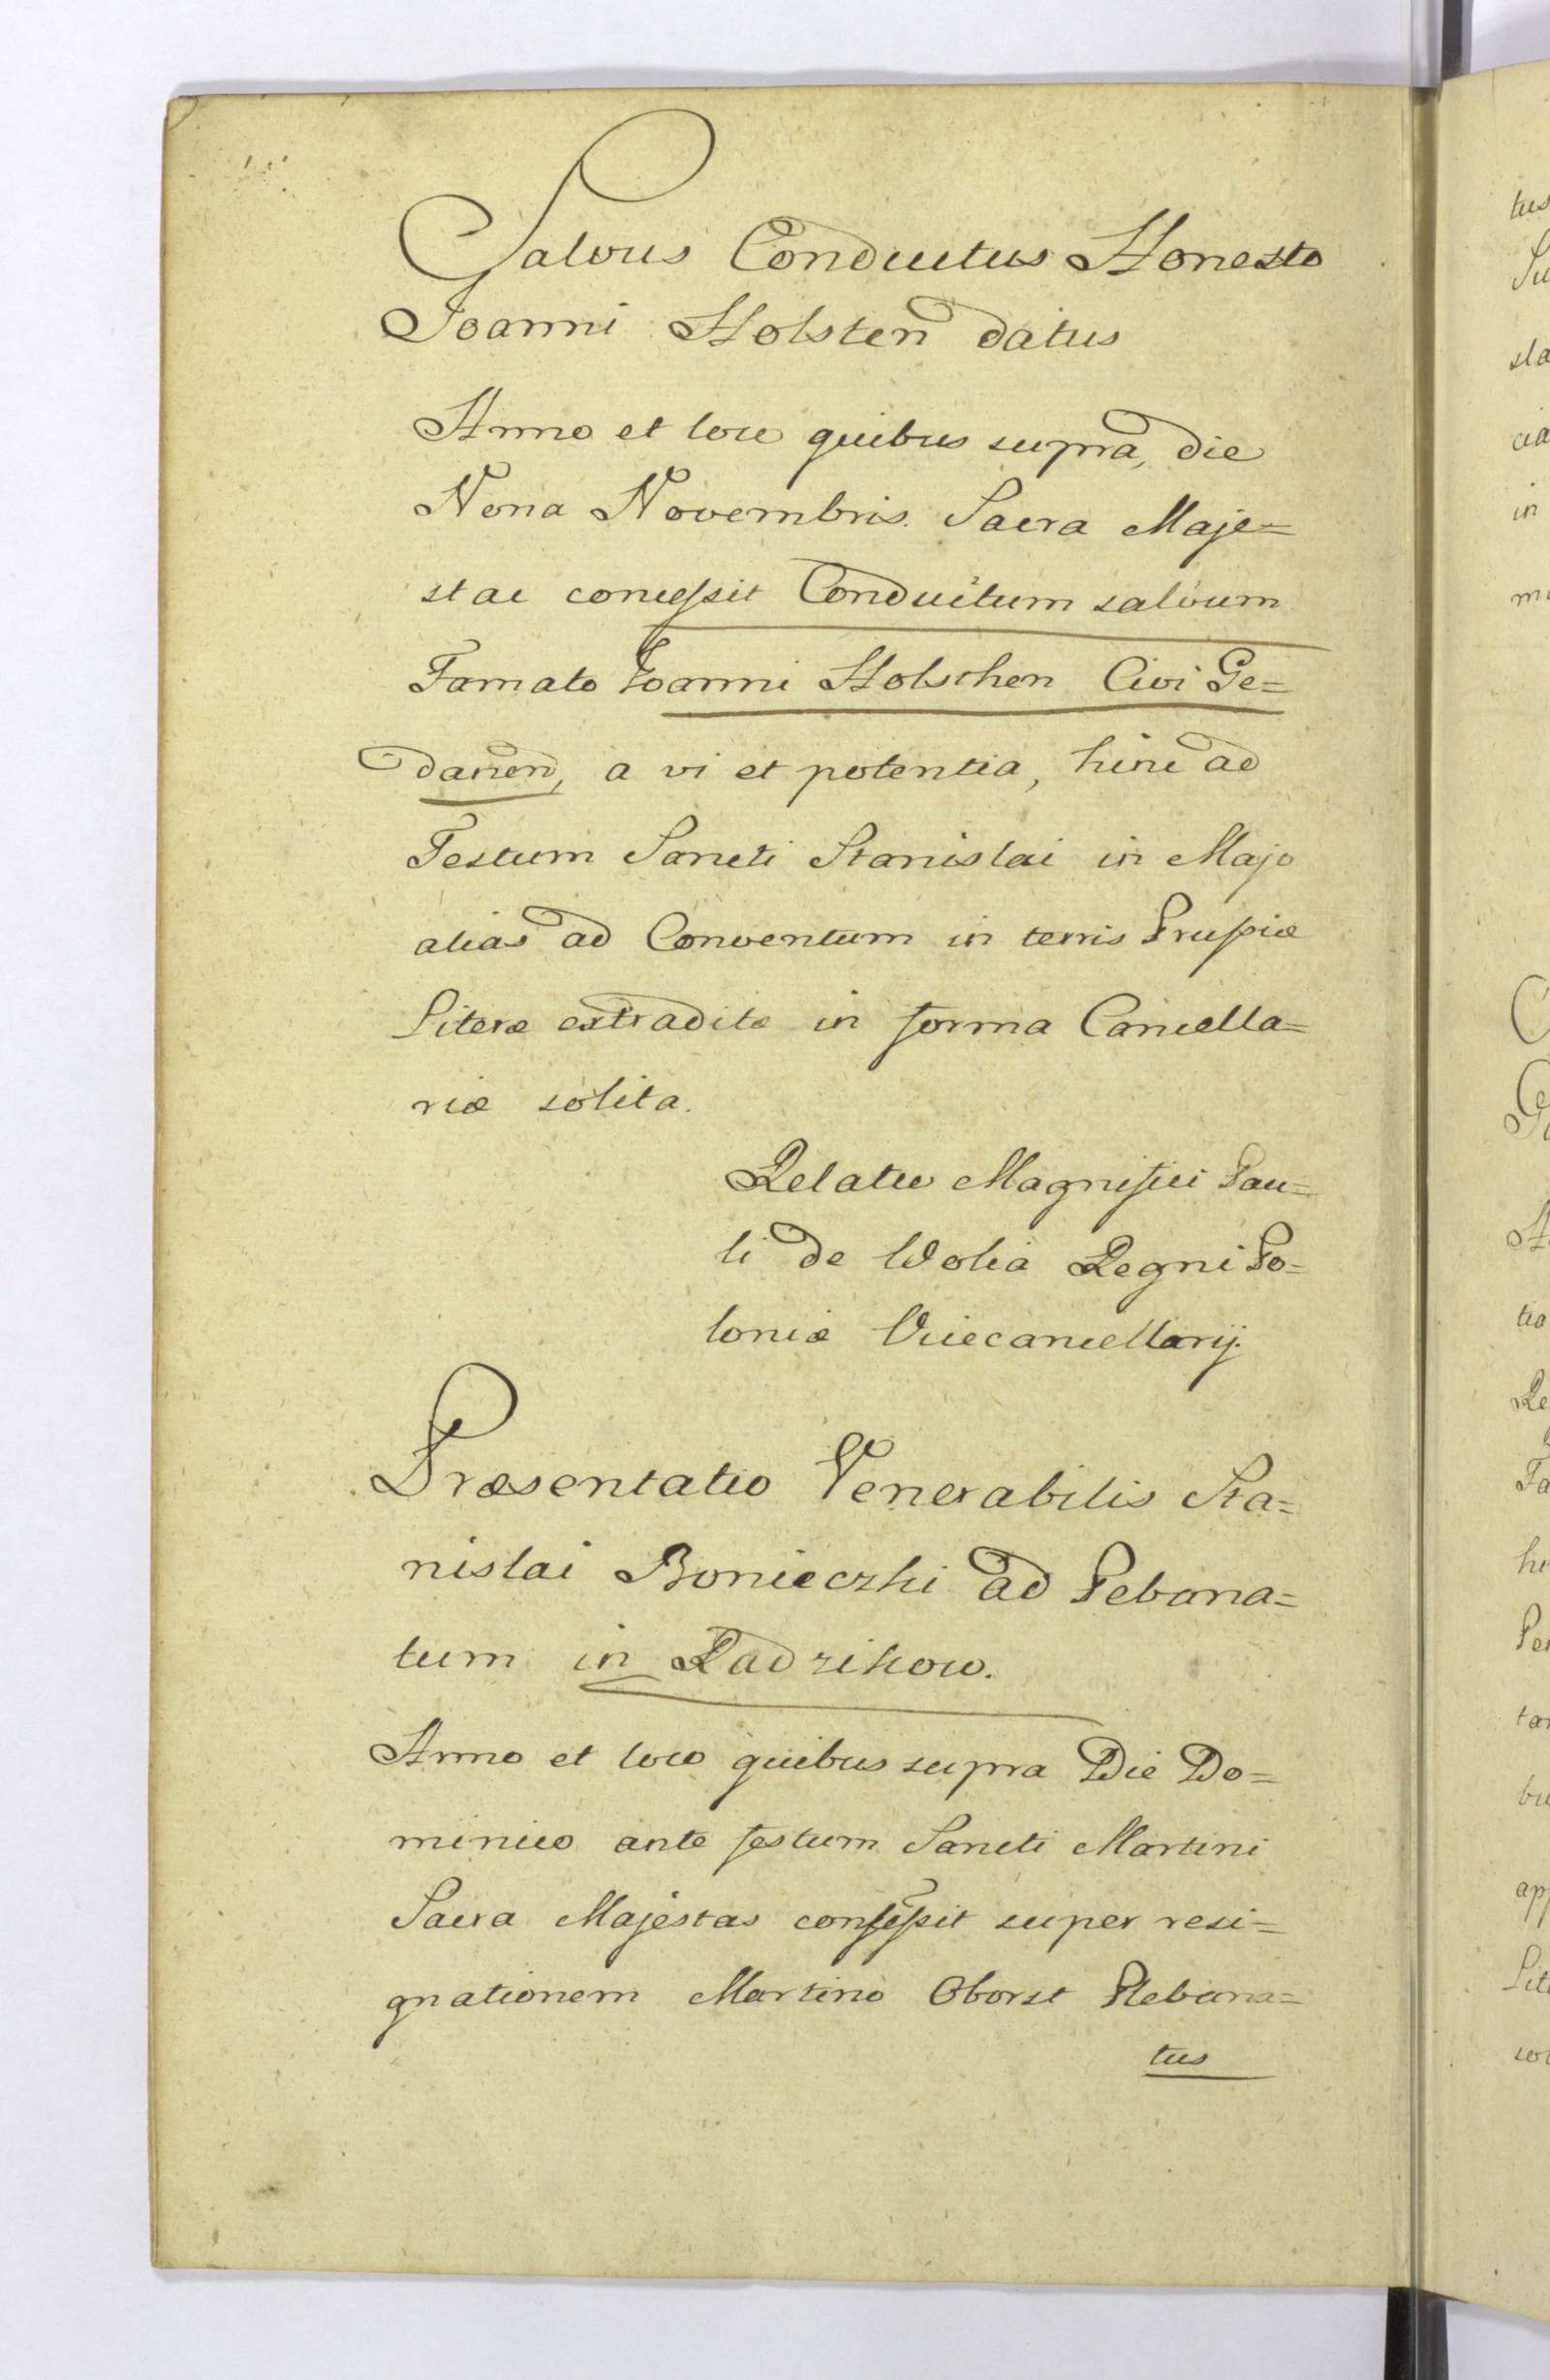 Salvus Conductus Honesto
Joanni Holsten datus
Anno et loco quibus supra, die
Nona Novembris. Sacra Maje=
stac concessit Conductum salvum
Famato Joanni Holschen Civi Ge=
danen, a vi et potentia, hinc ad
Festum Sancti Stanislai in Majo
alias ad Conventum in terris Prussiæ
Literæ extraditæ in forma Cancella=
riæ solita.
Relatio Magnifici Pau=
li de Wolia Regni Po=
loniæ Vicecancellarij.
Præsentatio Venerabilis Sta=
nislai Bonieczki ad Plebana=
tum in Radzikow.
Anno et loco quibus supra Die Do=
minico ante festum Sancti Martini
Sacra Majestas consessit super resi=
gnationem Martino Oborst Plebana=
tus